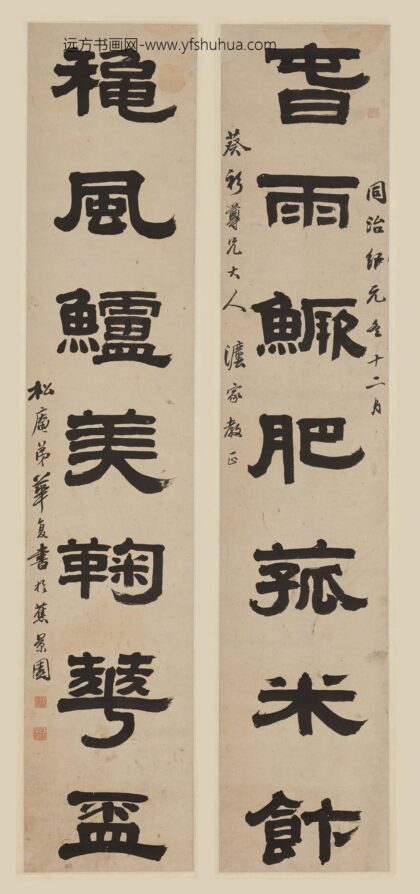 远方书画网-www.yfshuhua.com
同治紀元冬十二月
旾雨鱖肥菰米飰
葵新尊兄大人灋家教正
穐風鱸美鞠華盃
松庵弟華復書於蕉景園